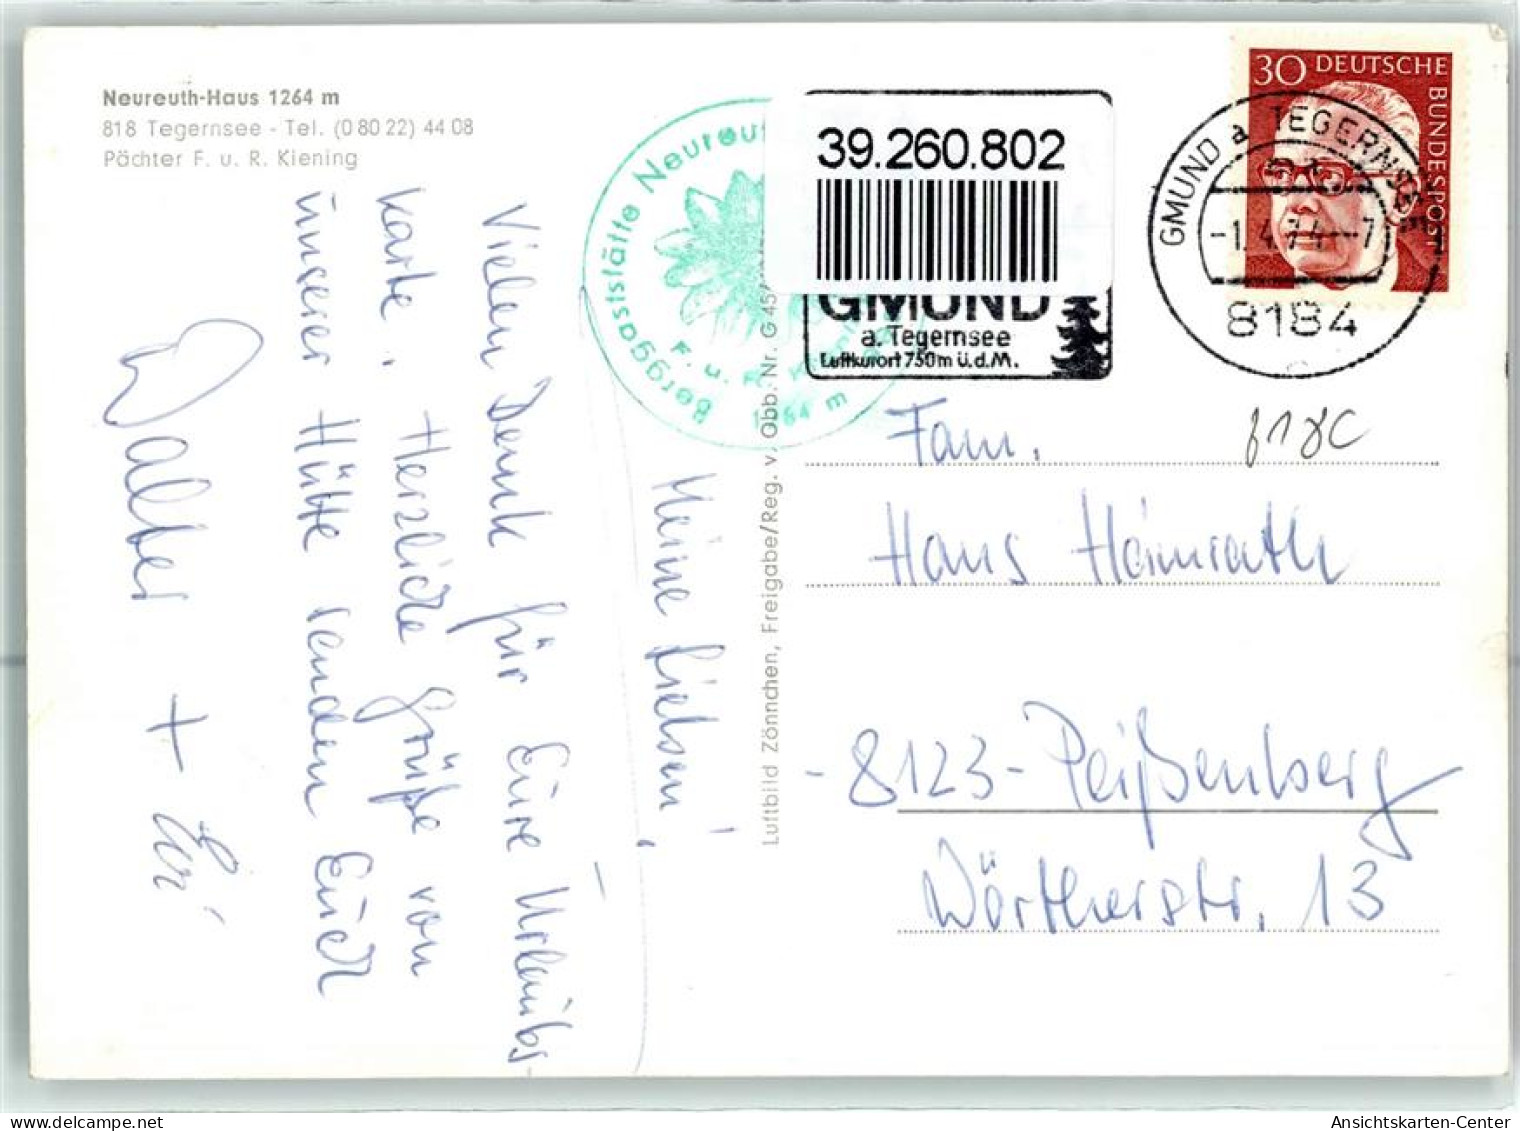 Neureuth-Haus 1264 m
818 Tegernsee - Tel. (0 80 22) 44 08
Pächter F. u. R. Kiening
Meine Lieben!
Vielen Dank für Eure Urlaubs-
karte. Herzliche Grüße von
unserer Hütte senden Euch
Walter +
Berggaststätte Neureut
F. u. R.
1264 m
Luftbild Zönnchen, Freigabe/Reg. v. Obb. Nr. G 45
39.260.802
GMUND
a. Tegernsee
Luftkurort 750 m ü.d.M.
GMUND a TEGERNSEE
-1.4.74--7
8184
30 DEUTSCHE
BUNDESPOST
818C
Fam.
Hans Heimrath
-8123- Peißenberg
Wörtherstr. 13
Ansichtskarten-Center